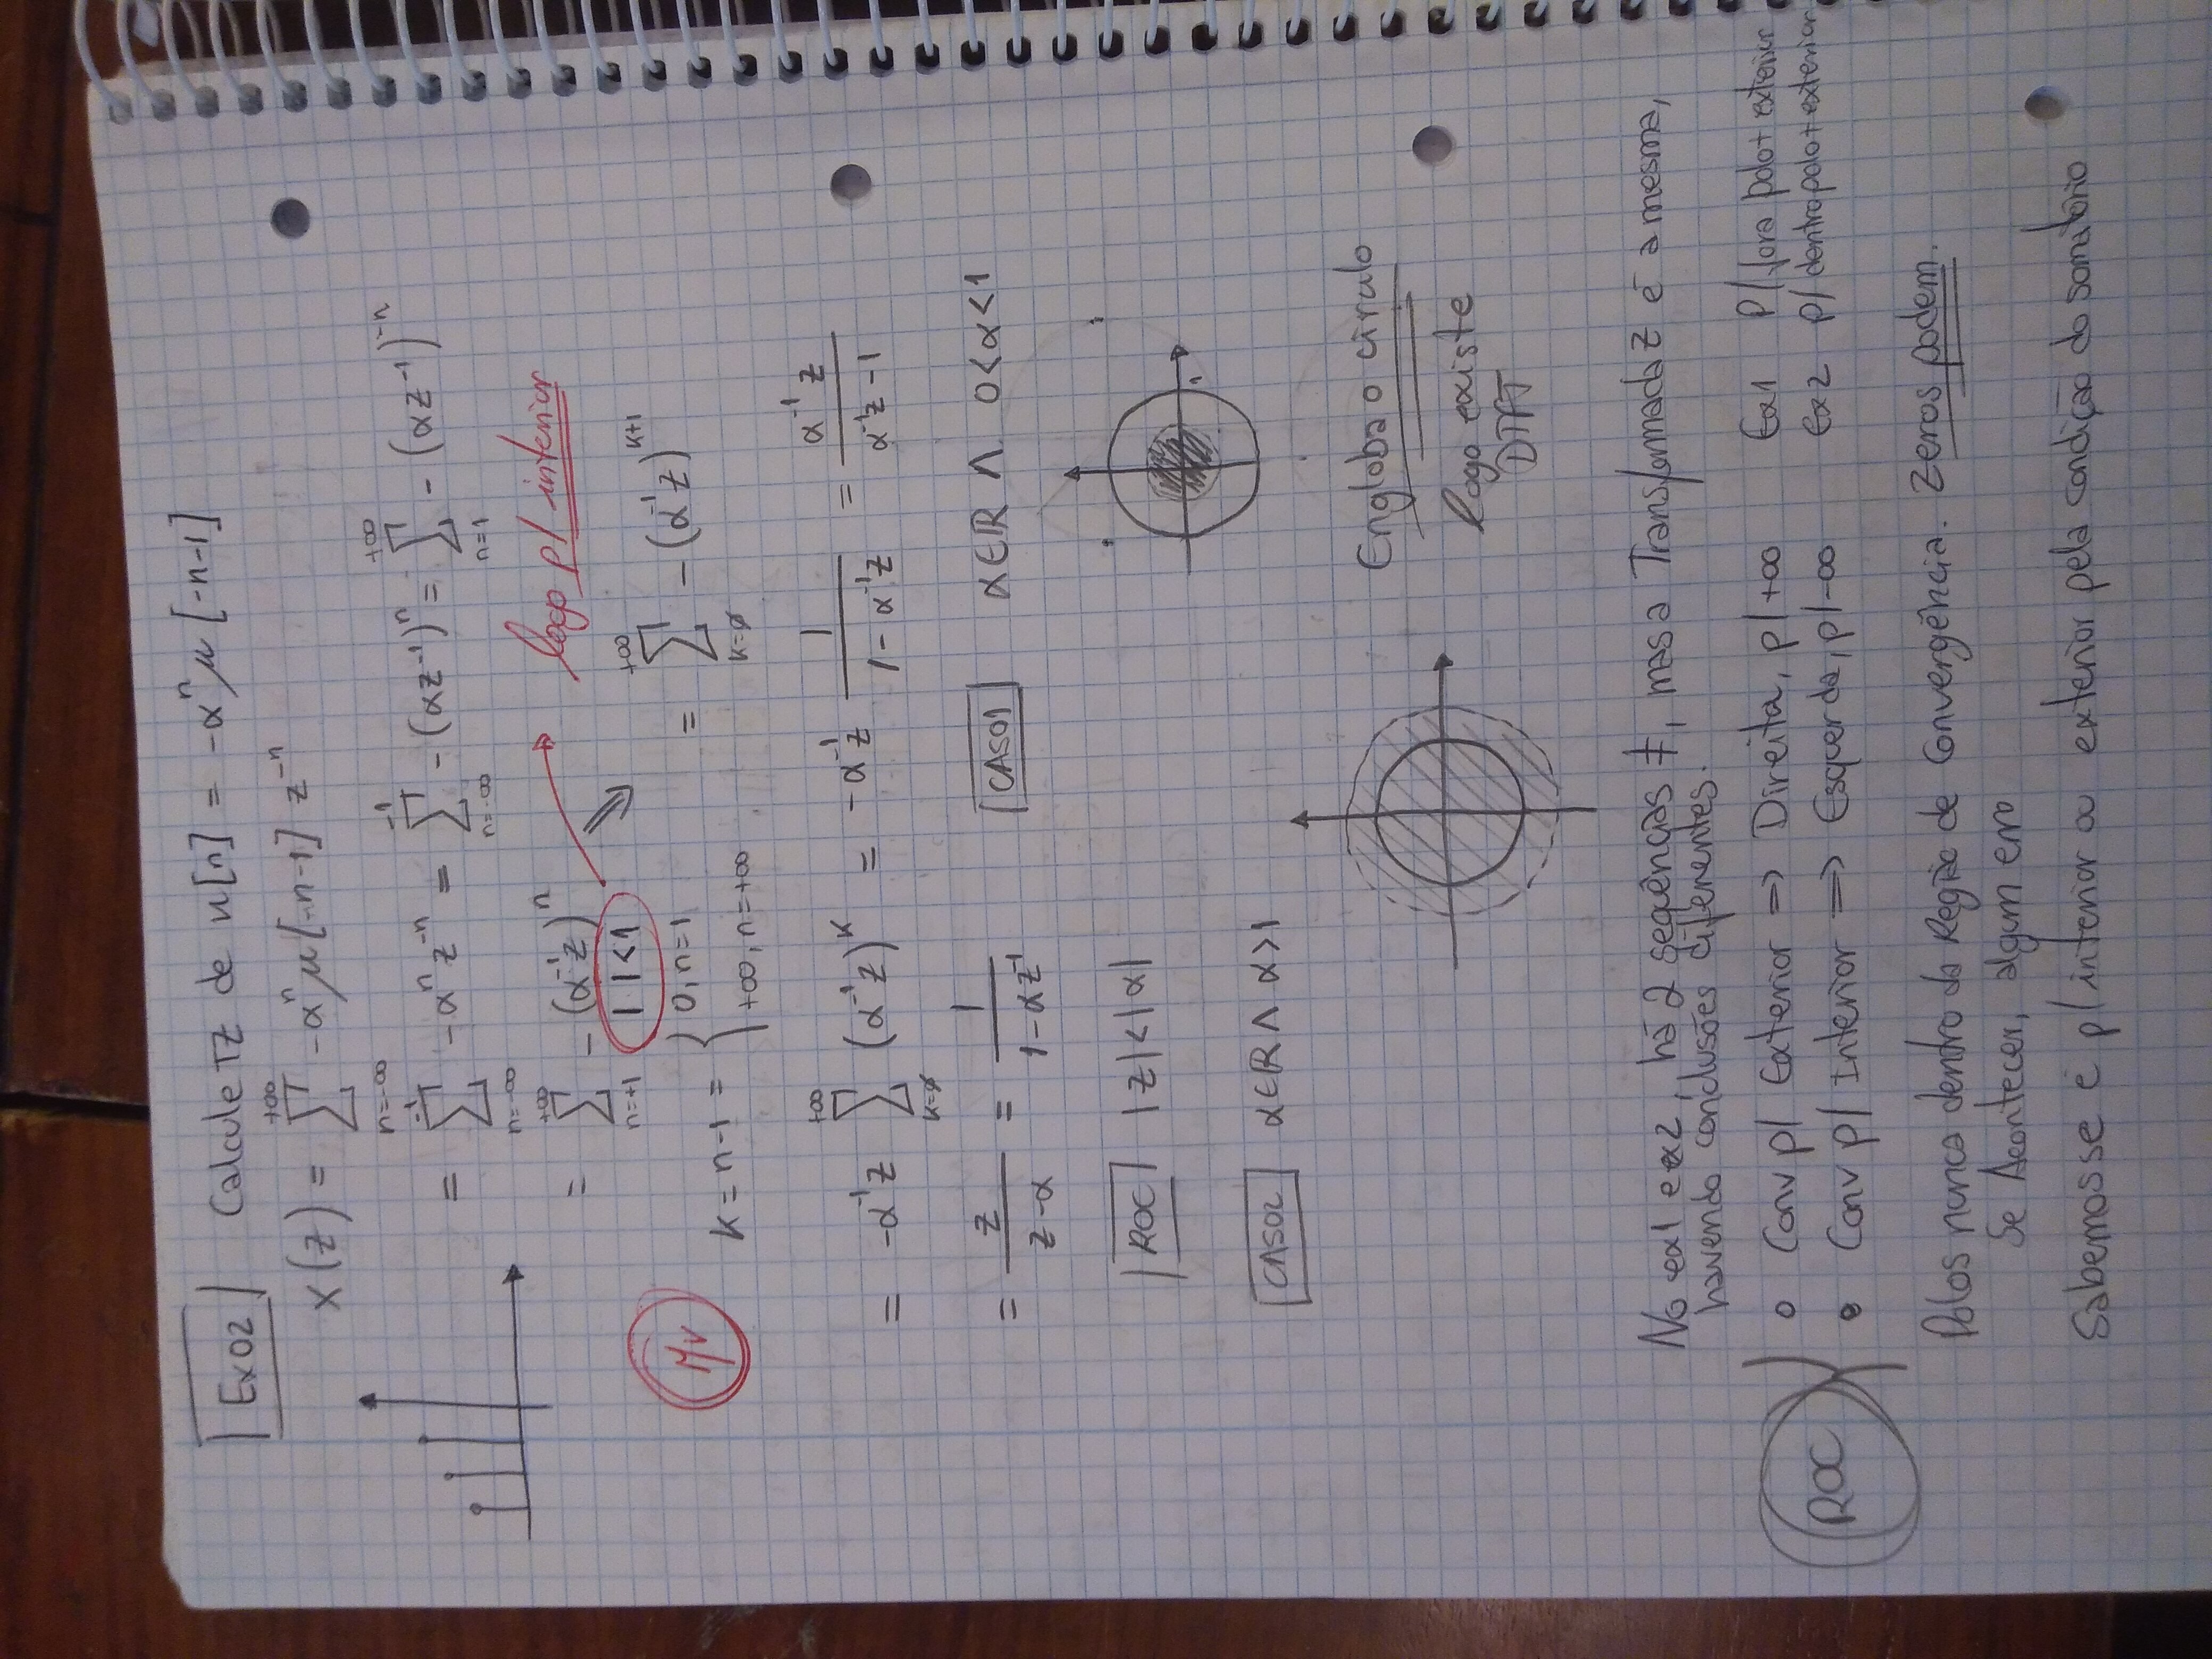 Ex02 Calcule TZ de x[n] = -α^n μ[-n-1]
X(z) = ∑_{n=-∞}^{+∞} -α^n μ[-n-1] z^{-n}
= ∑_{n=-∞}^{-1} -α^n z^{-n} = ∑_{n=-∞}^{-1} -(αz^{-1})^n = ∑_{n=1}^{+∞} -(αz^{-1})^{-n}
= ∑_{n=+1}^{+∞} -(α^{-1}z)^n
logo p/ interior
| |<1
k = n-1 = { 0, n=1
+∞, n=+∞
= ∑_{k=0}^{+∞} -(α^{-1}z)^{k+1}
= -α^{-1}z ∑_{k=0}^{+∞} (α^{-1}z)^k = -α^{-1}z 1/(1-α^{-1}z) = α^{-1}z/(α^{-1}z-1)
= z/(z-α) = 1/(1-αz^{-1})
CASO1 α∈ℝ ∧ 0<α<1
ROC |z|<|α|
1
CASO2 α∈ℝ ∧ α>1
Engloba o círculo
logo existe
DTFT
No ex1 e ex2, há 2 sequências ≠, mas a Transformada Z é a mesma,
havendo conclusões diferentes.
ROC
o Conv p/ Exterior ⇒ Direita, p/ +∞ Ex1 P/ fora polo + exterior
• Conv p/ Interior ⇒ Esquerda, p/ -∞ Ex2 p/ dentro polo + exterior
Polos nunca dentro da Região de Convergência. Zeros podem.
Se Acontecer, algum erro
Sabemos se é p/ interior ou exterior pela condição do somatório